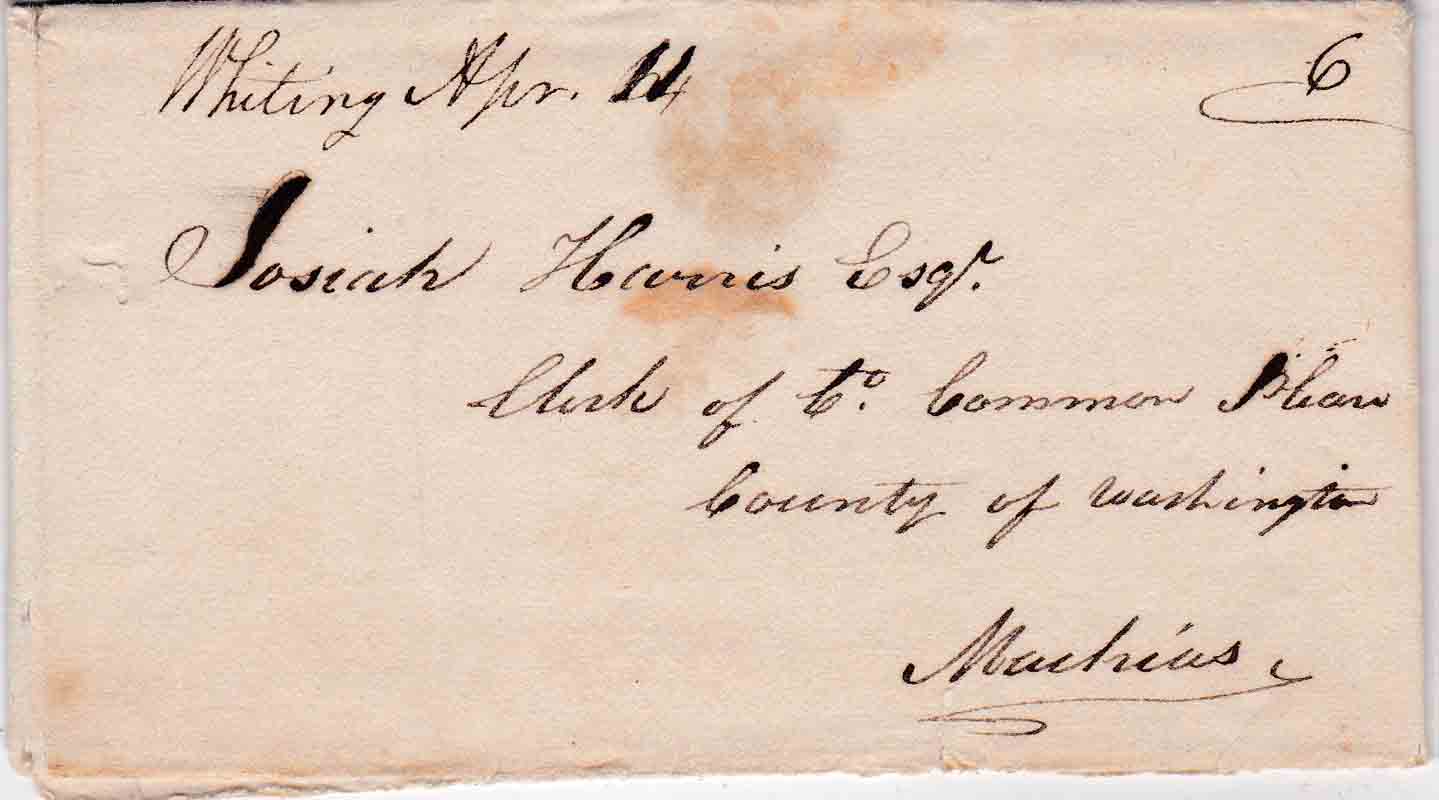 Whiting Apr. 14
6
Josiah Harris Esqr.
Clerk of Co. Common Pleas
County of Washington
Machias